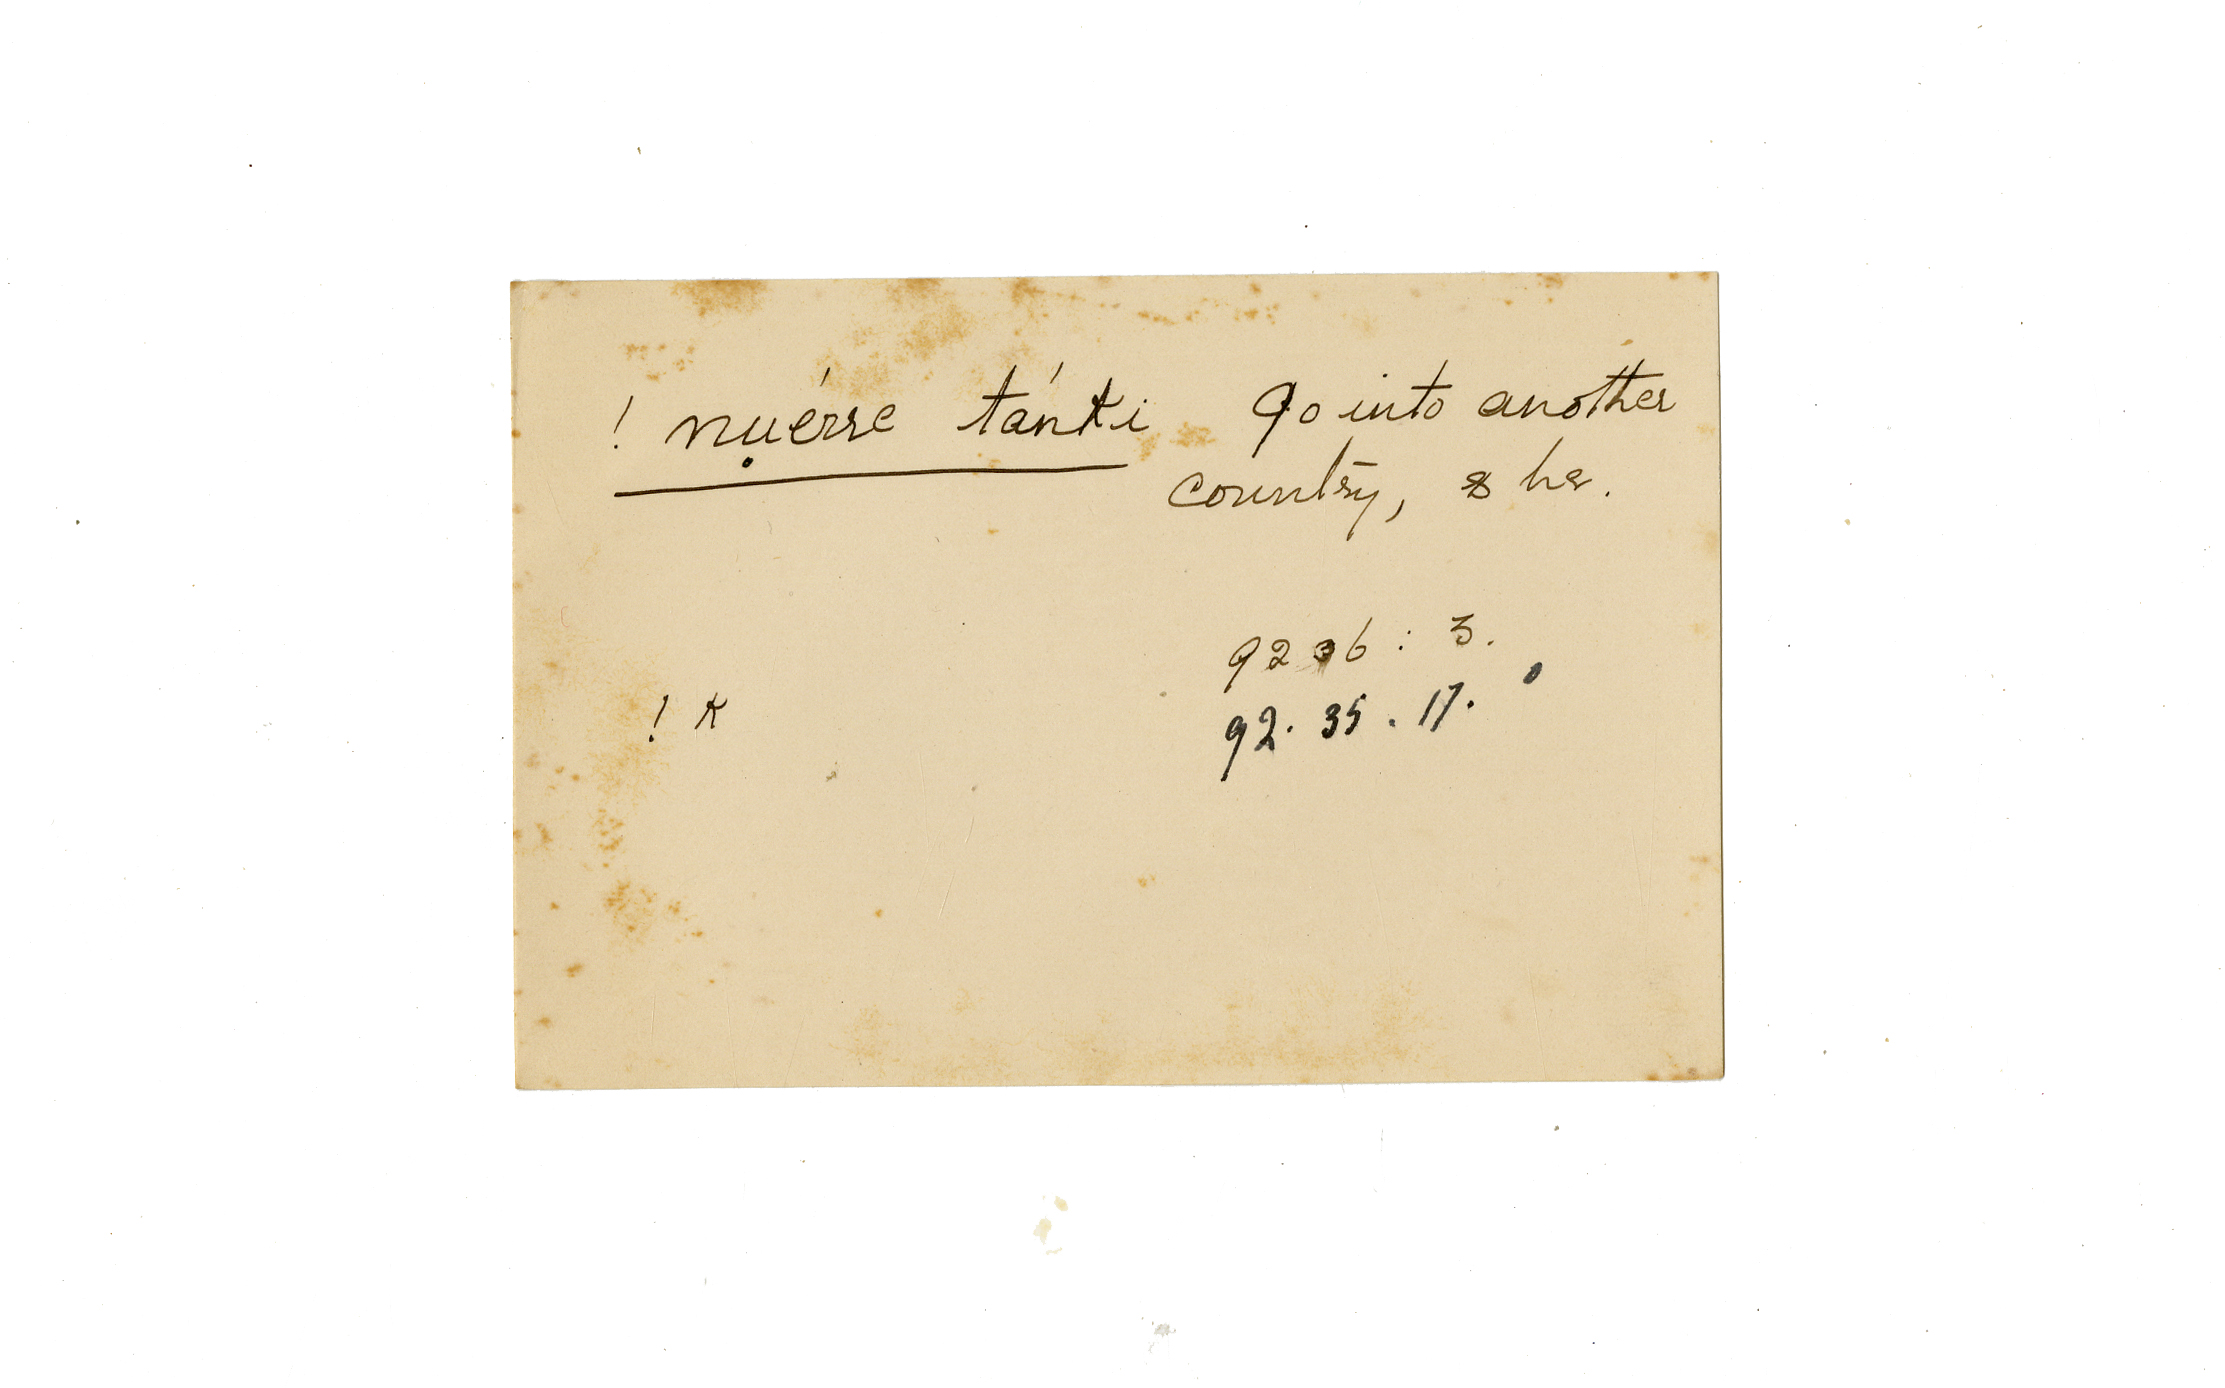 ! nụérse tánki go into another
country, & her.
9236 : 3.
! k 92. 35. 17.